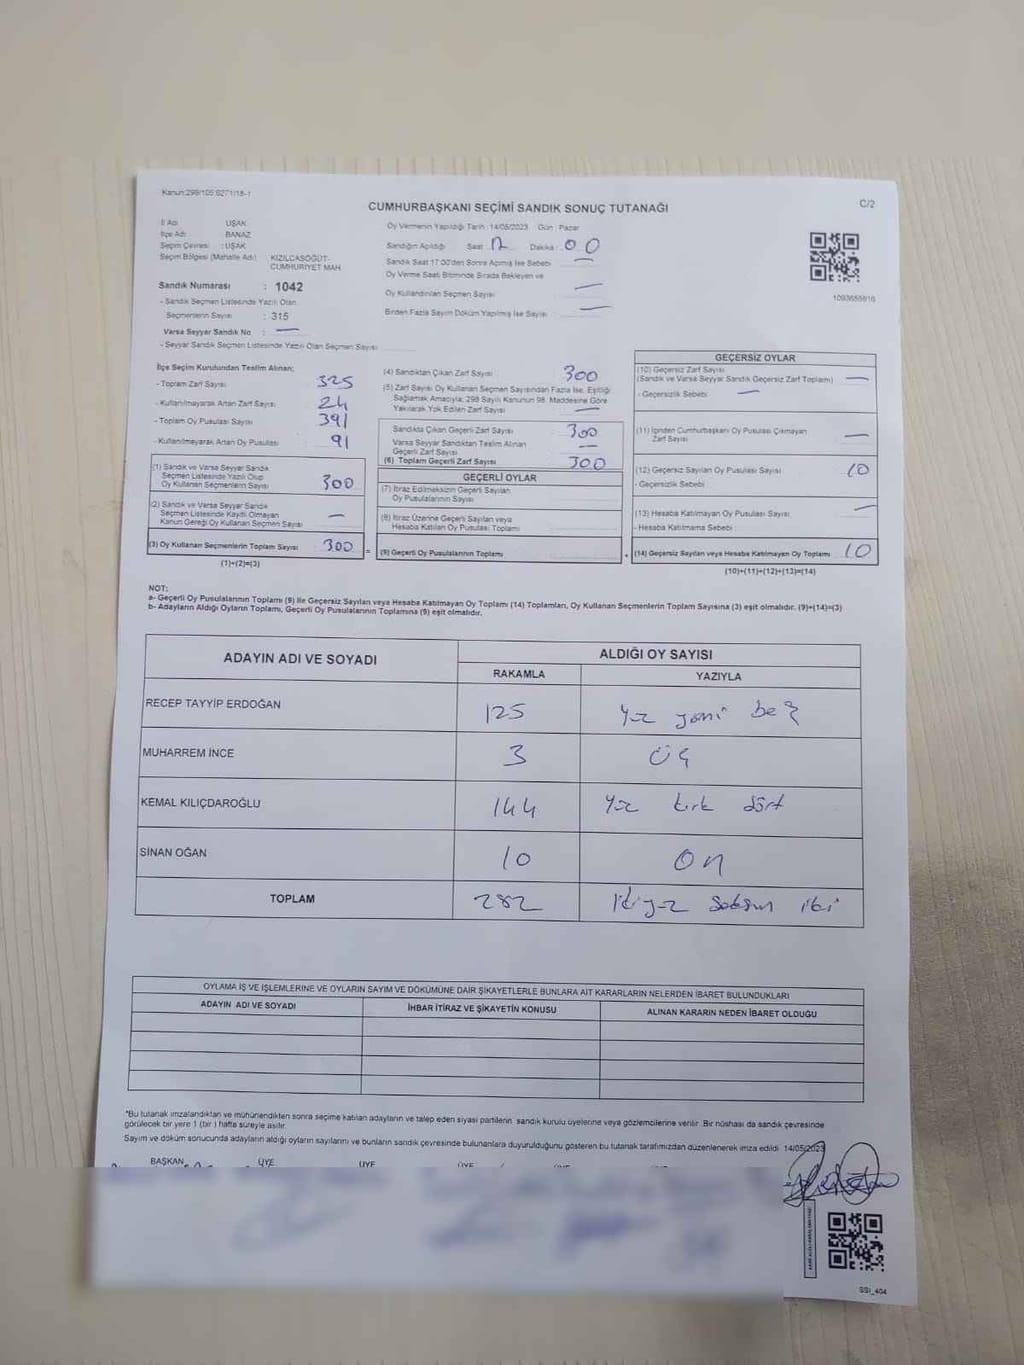 Kanun:298/105 6271/18-1
C/2
CUMHURBAŞKANI SEÇİMİ SANDIK SONUÇ TUTANAĞI
İl Adı : UŞAK
İlçe Adı : BANAZ
Seçim Çevresi : UŞAK
Seçim Bölgesi (Mahalle Adı) : KIZILCASÖĞÜT-CUMHURİYET MAH
Sandık Numarası : 1042
- Sandık Seçmen Listesinde Yazılı Olan
Seçmenlerin Sayısı : 315
Varsa Seyyar Sandık No : —
- Seyyar Sandık Seçmen Listesinde Yazılı Olan Seçmen Sayısı
Oy Vermenin Yapıldığı Tarih :14/05/2023 Gün : Pazar
Sandığın Açıldığı Saat Dakika : 00
Sandık Saat 17:00'den Sonra Açılmış İse Sebebi —
Oy Verme Saati Bitiminde Sırada Bekleyen ve
Oy Kullandırılan Seçmen Sayısı —
Birden Fazla Sayım Döküm Yapılmış İse Sayısı —
1093655816
İlçe Seçim Kurulundan Teslim Alınan;
- Toplam Zarf Sayısı 325
- Kullanılmayarak Artan Zarf Sayısı 24
- Toplam Oy Pusulası Sayısı 391
- Kullanılmayarak Artan Oy Pusulası 91
(1) Sandık ve Varsa Seyyar Sandık
Seçmen Listesinde Yazılı Olup
Oy Kullanan Seçmenlerin Sayısı 300
(2) Sandık ve Varsa Seyyar Sandık
Seçmen Listesinde Kaydı Olmayan
Kanun Gereği Oy Kullanan Seçmen Sayısı —
(3) Oy Kullanan Seçmenlerin Toplam Sayısı 300 =
(1)+(2)=(3)
(4) Sandıktan Çıkan Zarf Sayısı 300
(5) Zarf Sayısı Oy Kullanan Seçmen Sayısından Fazla İse, Eşitliği
Sağlamak Amacıyla; 298 Sayılı Kanunun 98. Maddesine Göre
Yakılarak Yok Edilen Zarf Sayısı —
Sandıkta Çıkan Geçerli Zarf Sayısı 300
Varsa Seyyar Sandıktan Teslim Alınan
Geçerli Zarf Sayısı —
(6) Toplam Geçerli Zarf Sayısı 300
GEÇERLİ OYLAR
(7) İtiraz Edilmeksizin Geçerli Sayılan
Oy Pusulalarının Sayısı
(8) İtiraz Üzerine Geçerli Sayılan veya
Hesaba Katılan Oy Pusulası Toplamı
(9) Geçerli Oy Pusulalarının Toplamı +
GEÇERSİZ OYLAR
(10) Geçersiz Zarf Sayısı
(Sandık ve Varsa Seyyar Sandık Geçersiz Zarf Toplamı) —
- Geçersizlik Sebebi —
(11) İçinden Cumhurbaşkanı Oy Pusulası Çıkmayan
Zarf Sayısı —
(12) Geçersiz Sayılan Oy Pusulası Sayısı 10
- Geçersizlik Sebebi
(13) Hesaba Katılmayan Oy Pusulası Sayısı —
- Hesaba Katılmama Sebebi
(14) Geçersiz Sayılan veya Hesaba Katılmayan Oy Toplamı 10
(10)+(11)+(12)+(13)=(14)
NOT:
a- Geçerli Oy Pusulalarının Toplamı (9) ile Geçersiz Sayılan veya Hesaba Katılmayan Oy Toplamı (14) Toplamları, Oy Kullanan Seçmenlerin Toplam Sayısına (3) eşit olmalıdır. (9)+(14)=(3)
b- Adayların Aldığı Oyların Toplamı, Geçerli Oy Pusulalarının Toplamına (9) eşit olmalıdır.
ADAYIN ADI VE SOYADI ALDIĞI OY SAYISI
RAKAMLA YAZIYLA
RECEP TAYYİP ERDOĞAN 125 Yüz yirmi beş
MUHARREM İNCE 3 üç
KEMAL KILIÇDAROĞLU 144 Yüz kırk dört
SİNAN OĞAN 10 On
TOPLAM 282 İkiyüz seksen iki
OYLAMA İŞ VE İŞLEMLERİNE VE OYLARIN SAYIM VE DÖKÜMÜNE DAİR ŞİKAYETLERLE BUNLARA AİT KARARLARIN NELERDEN İBARET BULUNDUKLARI
ADAYIN ADI VE SOYADI İHBAR İTİRAZ VE ŞİKAYETİN KONUSU ALINAN KARARIN NEDEN İBARET OLDUĞU
*Bu tutanak imzalandıktan ve mühürlendikten sonra seçime katılan adayların ve talep eden siyasi partilerin sandık kurulu üyelerine veya gözlemcilerine verilir. Bir nüshası da sandık çevresinde
görülecek bir yere 1 (bir ) hafta süreyle asılır.
Sayım ve döküm sonucunda adayların aldığı oyların sayılarını ve bunların sandık çevresinde bulunanlara duyurulduğunu gösteren bu tutanak tarafımızdan düzenlenerek imza edildi. 14/05/2023
BAŞKAN ÜYE ÜYE ÜYE ÜYE ÜYE
SSI_404